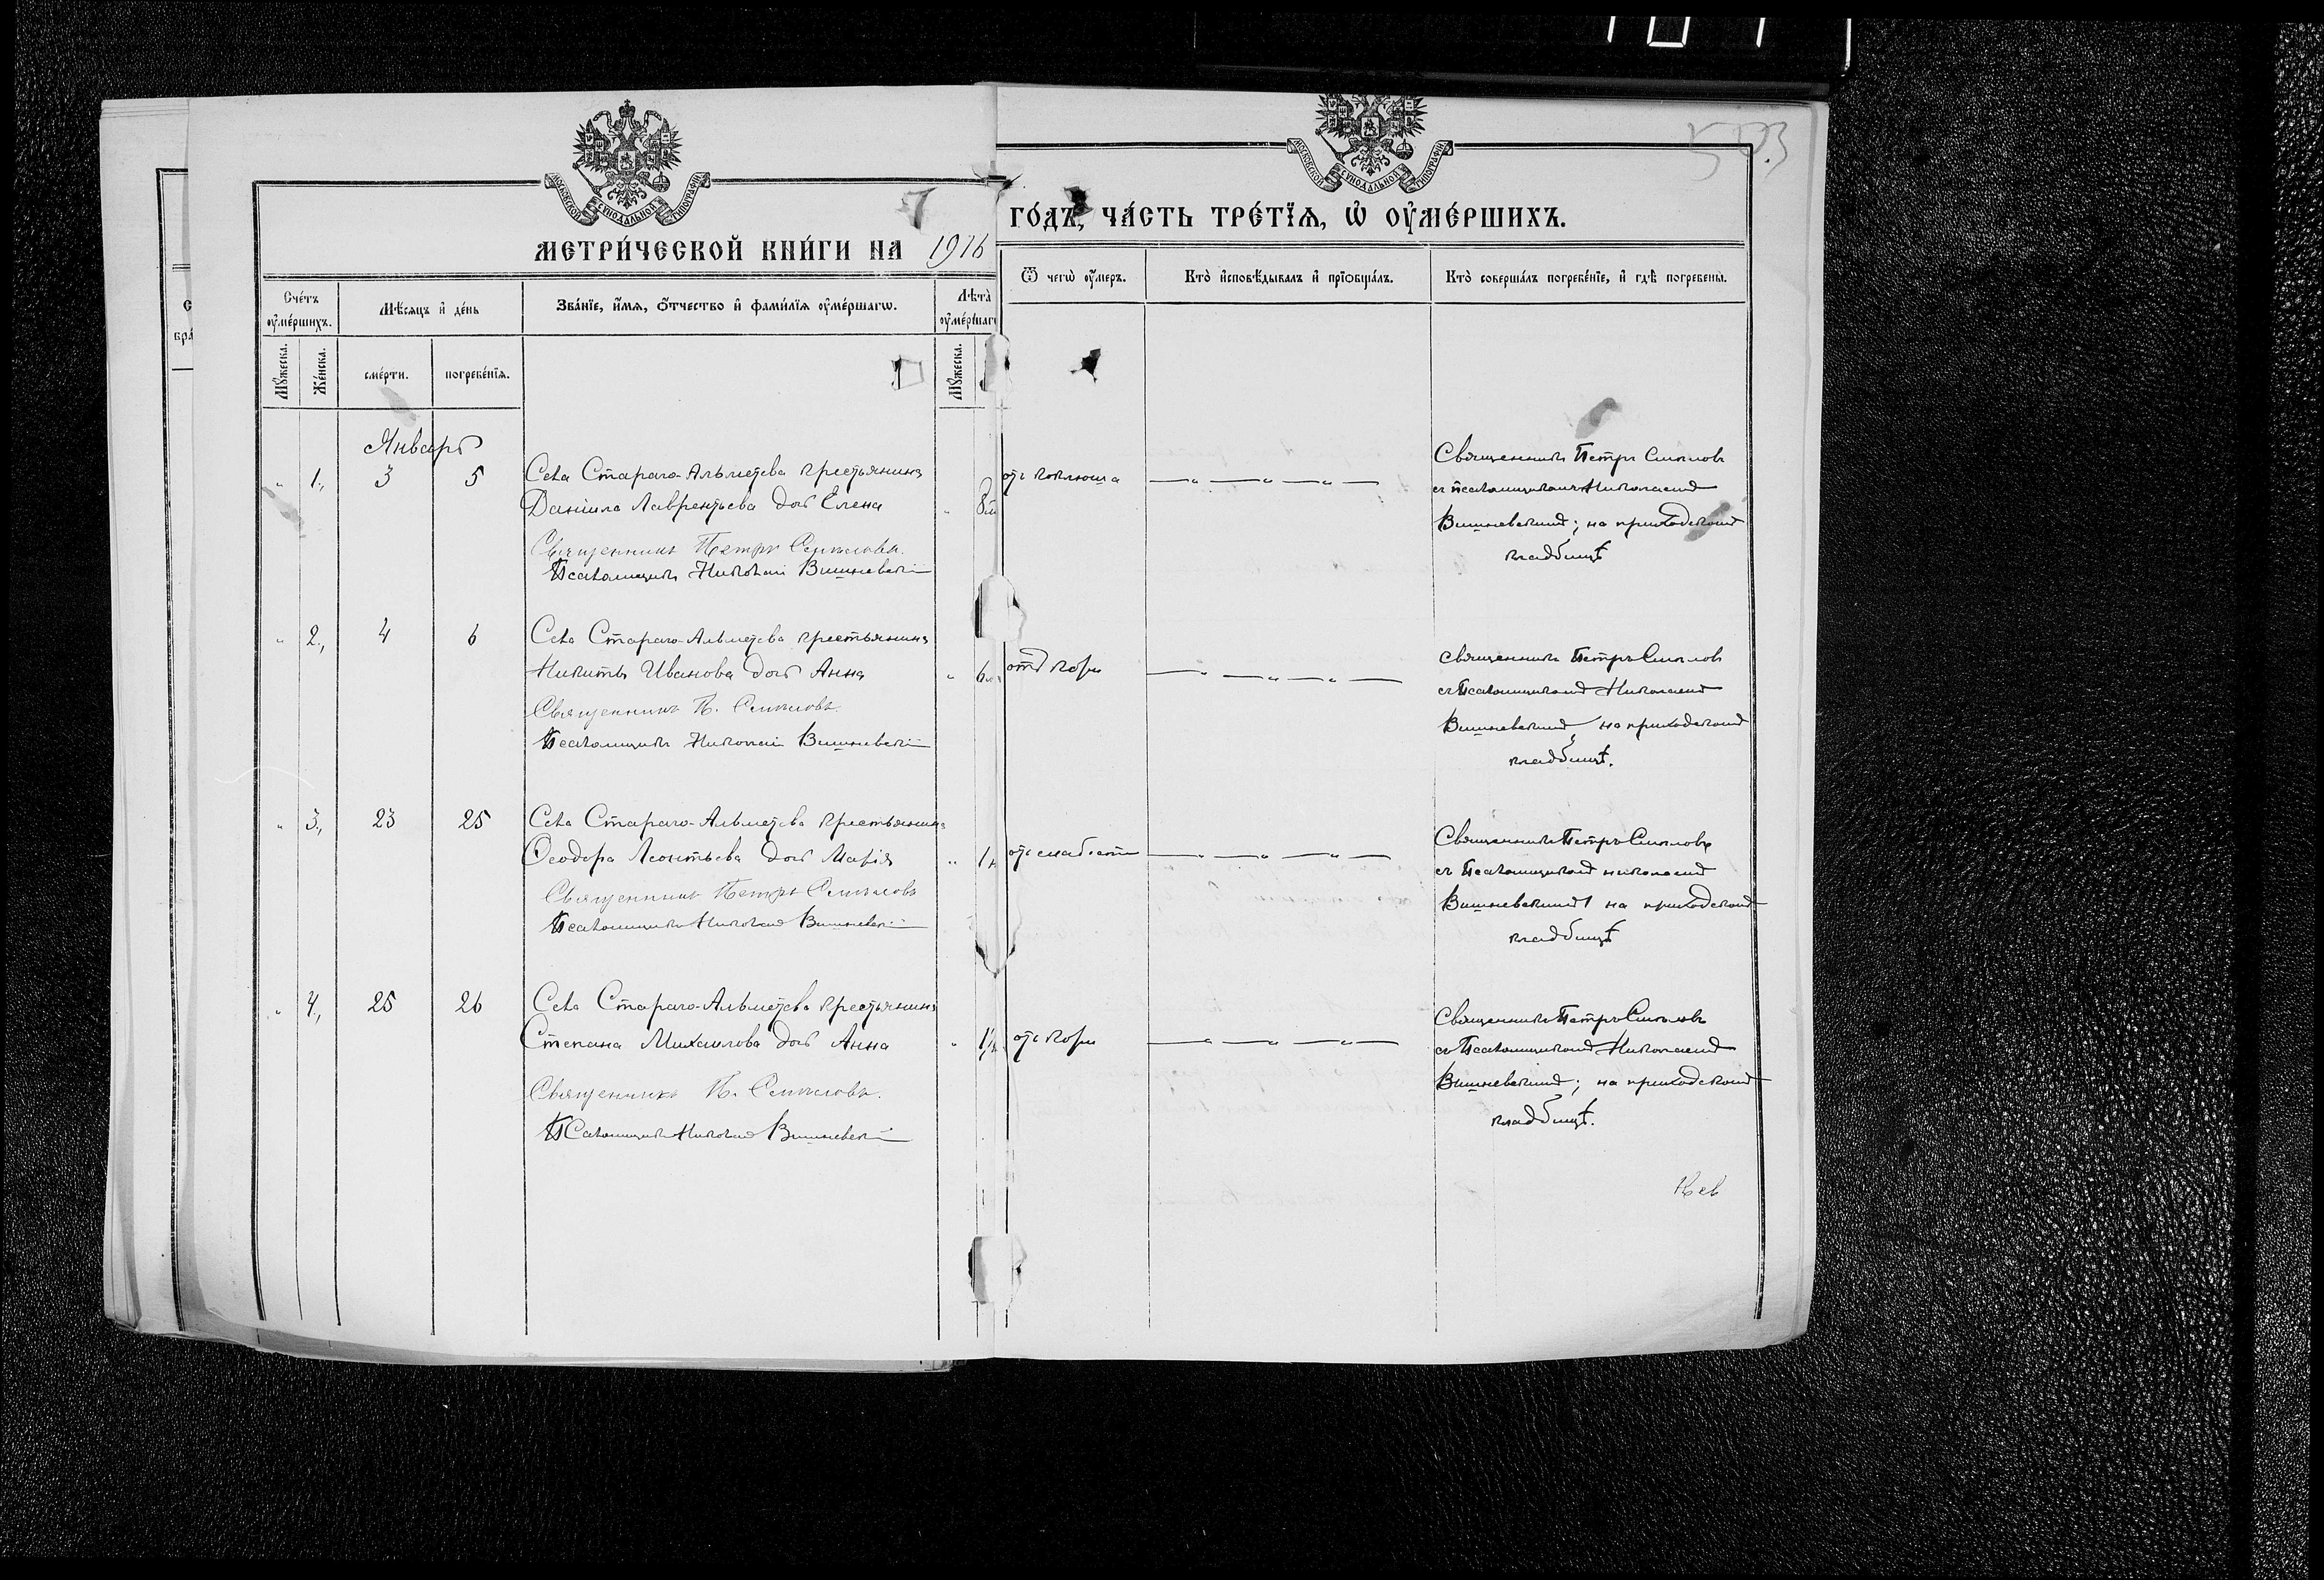 503
МОСКОВСКОЙ СѴНОДАЛЬНОЙ ТИПОГРАФІИ
МОСКОВСКОЙ СѴНОДАЛЬНОЙ ТИПОГРАФІИ
МЕТРИ́ЧЕСКОЙ КНИ́ГИ НА 1916
ГО́ДЪ, ЧА́СТЬ ТРЕ́ТЇѦ, Ѡ҆ ОУ҆МЕ́РШИХЪ.
Сче́тъ оу҆ме́ршихъ.
Мѣ́сѧцъ и҆ де́нь
Зва́нїе, и҆́мѧ, ѻ҆́тчество и҆ фами́лїѧ оу҆ме́ршагѡ.
Лѣ́та оу҆ме́ршагѡ
Ѿ чегѡ̀ оу҆́меръ.
Кто̀ и҆сповѣ́дывалъ и҆ прїѡбща́лъ.
Кто̀ соверша́лъ погребе́нїе, и҆ гдѣ̀ погребены̀.
Мꙋ́жеска.
Же́нска.
сме́рти.
погребе́нїѧ.
Мꙋ́жеска.
Январь
" 1., 3 5 Села Стараго-Альметева крестьянина
Даніила Лаврентьева дочь Елена " 8 м
Священникъ Петръ Смысловъ.
Псаломщикъ Николай Вишневскій
отъ коклюша — " — " — " —
Священникъ Петръ Смысловъ
съ псаломщикомъ Николаемъ
Вишневскимъ; на приходскомъ
кладбищѣ
" 2., 4 6 Села Стараго-Альметева крестьянина
Никиты Иванова дочь Анна " 6
Священникъ П. Смысловъ.
Псаломщикъ Николай Вишневскій
отъ кори — " — " — " —
Священникъ Петръ Смысловъ
съ Псаломщикомъ Николаемъ
Вишневскимъ на приходскомъ
кладбищѣ.
" 3., 23 25 Села Стараго-Альметева крестьянина
Ѳеодора Леонтьева дочь Марія " 1
Священникъ Петръ Смысловъ
Псаломщикъ Николай Вишневскій
отъ слабости — " — " — " —
Священникъ Петръ Смысловъ
съ Псаломщикомъ Николаемъ
Вишневскимъ на приходскомъ
кладбищѣ
" 4., 25 26 Села Стараго-Альметева крестьянина
Степана Михаилова дочь Анна "
Священникъ П. Смысловъ.
Псаломщикъ Николай Вишневскій
отъ кори — " — " — " —
Священникъ Петръ Смысловъ
съ Псаломщикомъ Николаемъ
Вишневскимъ; на приходскомъ
кладбищѣ.